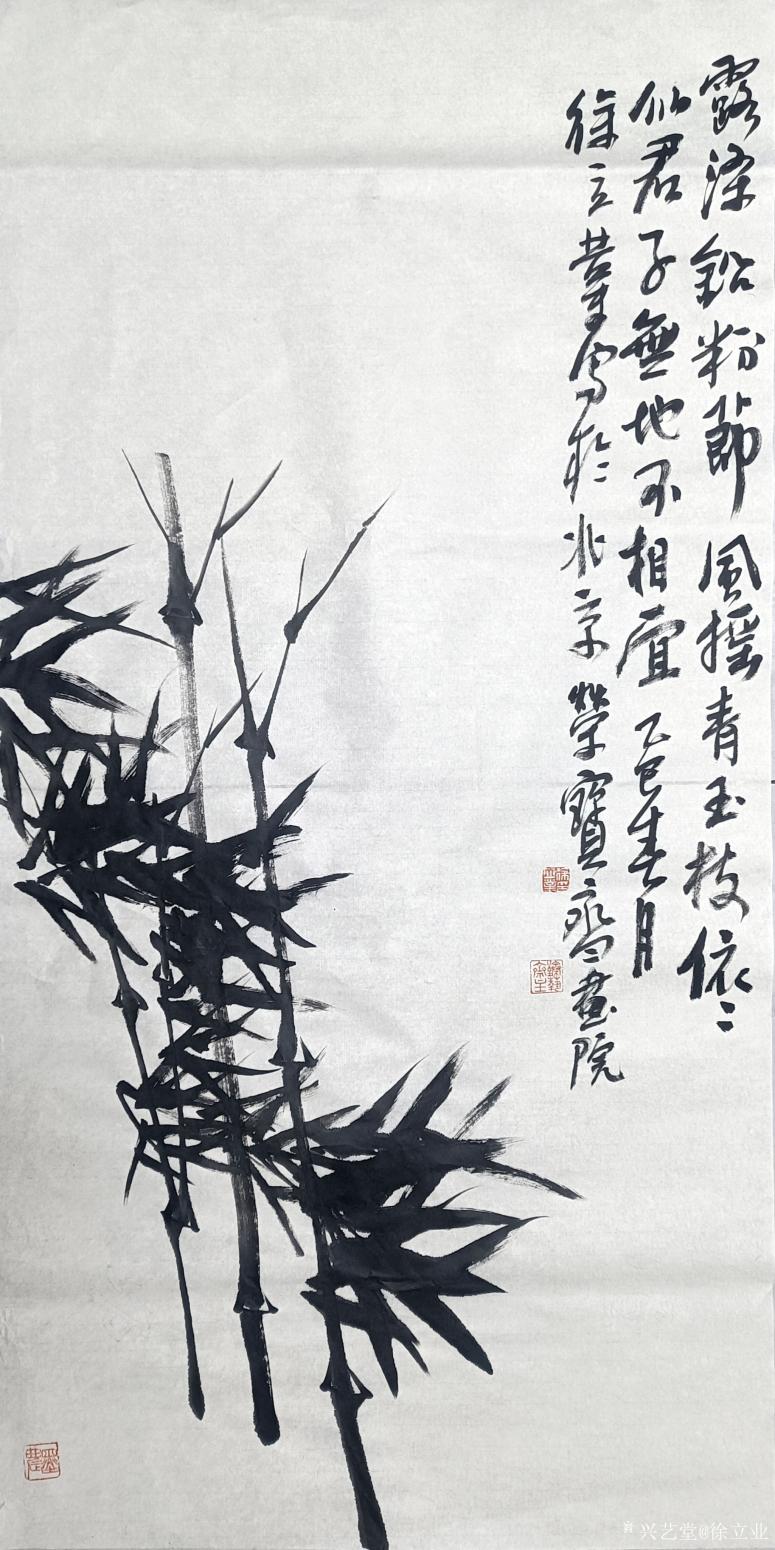 露涤鉛粉節風摇青玉枝依〻
似君子無地不相宜乙巳春月
徐立業寫於北京榮寶齋畫院
墨農
兴艺堂@徐立业